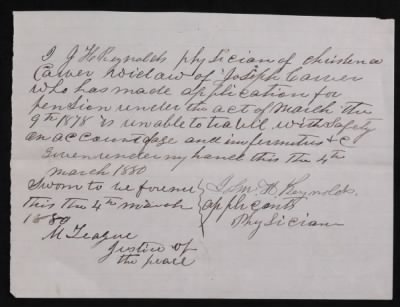 I J H Reynolds physician of Christena
Carver widow of Joseph Carver
who has made application for
pension under the act of March the
9th 1878 is unable to travel with safety
on account of age and infirmities & C
Given under my hand this the 4th
March 1880
Sworn to be fore me
this the 4th March
1880
M League
Justice of
the peace
J H Reynolds
applicants
Physician